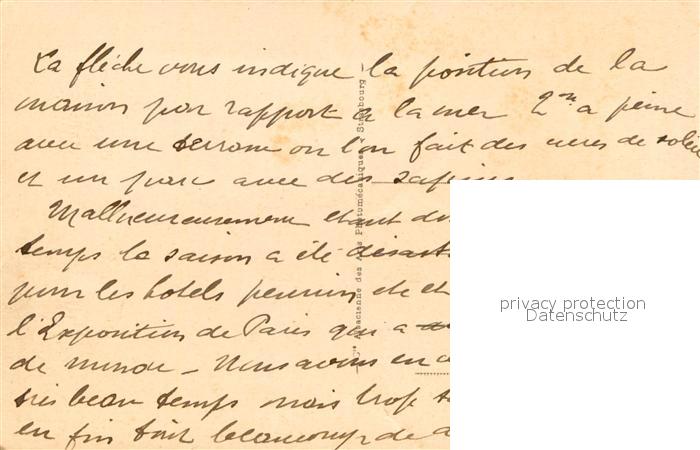 La flèche vous indique la position de la
maison par rapport a la mer 2m a peine
avec une terrasse ou l'on fait des cures de soleil
et un parc avec des sapins
Malheureusement etant
temps la saison a été
pour les hotels pension etc et
l'Exposition de Paris qui a
de monde - Nous avons eu
tres beau temps mais trop
en fin tout beaucoup de
Cie Alsacienne des Arts Photomécaniques Strasbourg
privacy protection
Datenschutz